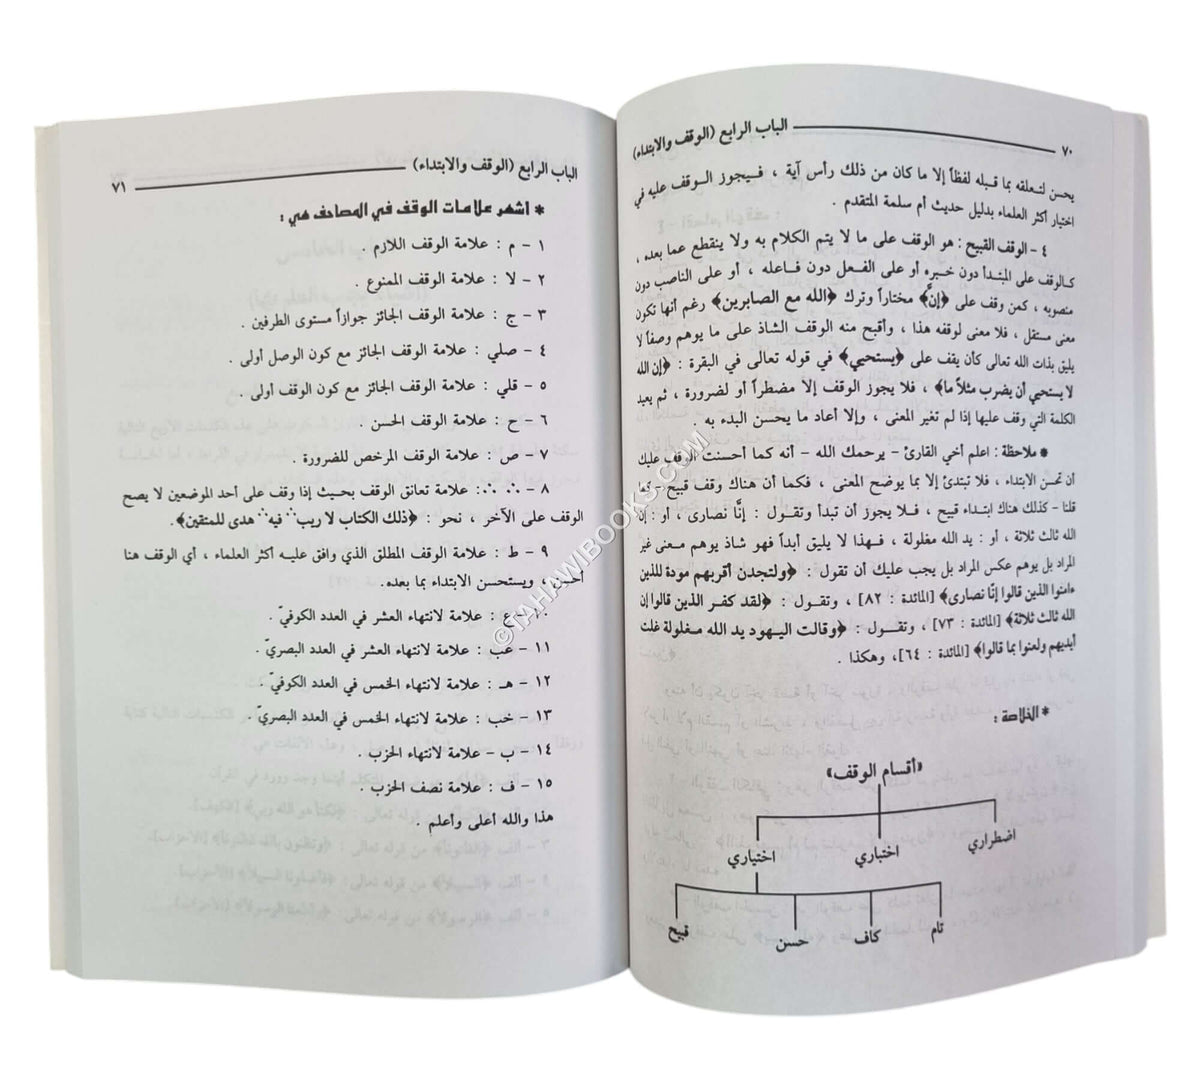 ٧٠ الباب الرابع (الوقف والابتداء)
يحسن لتعلقه بما قبله لفظاً إلا ما كان من ذلك رأس آية ، فـيجوز الـوقف عليه في
اختيار أكثر العلماء بدليل حديث أم سلمة المتقدم .
٤ - الوقف القبيح : هو الوقف على ما لا يتم الكلام به ولا ينقطع عما بعده ،
كـالوقف على المبتدأ دون خبره أو على الفعل دون فـاعله ، أو على الناصب دون
منصوبه ، كمن وقف على ﴿إنَّ﴾ مختاراً وترك ﴿الله مع الصابرين﴾ رغم أنها تكون
معنى مستقل ، فلا معنى لوقفه هذا ، وأقبح منه الوقف الشاذ على ما يوهم وصفاً لا
يليق بذات الله تعالى كأن يقف على ﴿يستحيي﴾ في قوله تعالى في البقرة : ﴿إن الله
لا يستحيي أن يضرب مثلاً ما﴾ ، فلا يجوز الوقف إلا مضطراً أو لضرورة ، ثم يعيد
الكلمة التي وقف عليها إذا لم تغير المعنى ، وإلا أعاد ما يحسن البدء به .
* ملاحظة : اعلم أخي القارئ - يرحمك الله - أنه كما أحسنت الوقف عليك
أن تحسن الابتداء ، فلا تبتدئ إلا بما يوضح المعنى ، فكما أن هناك وقف قبيح - كما
قلنا - كذلك هناك ابتداء قبيح ، فلا يجوز أن تبدأ وتقـول : إنَّا نصارى ، أو : إن
الله ثالث ثلاثة ، أو : يد الله مغلولة ، فـهذا لا يليق أبداً فهو شاذ يوهم معنى غير
المراد بل يوهم عكس المراد بل يجب عليك أن تقول : ﴿ولتجدن أقربهم مودة للذين
ءامنوا الذين قالوا إنَّا نصارى﴾ [المائدة : ٨٢] ، وتقـول : ﴿لقد كفر الذين قالوا إن
الله ثالث ثلاثة﴾ [المائدة : ٧٣] ، وتقـول : ﴿وقالت اليهود يد الله مغلولة غلت
أيديهم ولعنوا بما قالوا﴾ [المائدة : ٦٤]، وهكذا .
* الخلاصة :
«أقسام الوقف»
اضطراري اختباري اختياري
تام كاف حسن قبيح
الباب الرابع (الوقف والابتداء) ٧١
* أشهر علامات الوقف في المصاحف هي :
١ - م : علامة الوقف اللازم .
٢ - لا : علامة الوقف الممنوع .
٣ - ج : علامة الوقف الجائز جوازاً مستوى الطرفين .
٤ - صلي : علامة الوقف الجائز مع كون الوصل أولى .
٥ - قلي : علامة الوقف الجائز مع كون الوقف أولى .
٦ - ح : علامة الوقف الحسن .
٧ - ص : علامة الوقف المرخص للضرورة .
٨ - ∴ ∴: علامة تعانق الوقف بحيث إذا وقف على أحد الموضعين لا يصح
الوقف على الآخر ، نحو : ﴿ذلك الكتاب لا ريب∴ فيه∴ هدى للمتقين﴾.
٩ - ط : علامة الوقف المطلق الذي وافق عليـه أكثر العلماء ، أي الوقف هنا
أحسن ، ويستحسن الابتداء بما بعده.
١٠ - ع : علامة لانتهاء العشر في العدد الكوفيّ .
١١ - عب : علامة لانتهاء العشر في العدد البصريّ .
١٢ - هـ : علامة لانتهاء الخمس في العدد الكوفيّ .
١٣ - خب : علامة لانتهاء الخمس في العدد البصريّ .
١٤ - ب - علامة لانتهاء الحزب .
١٥ - ف : علامة نصف الحزب .
هذا والله أعلى وأعلم .
©TAHAWIBOOKS.COM